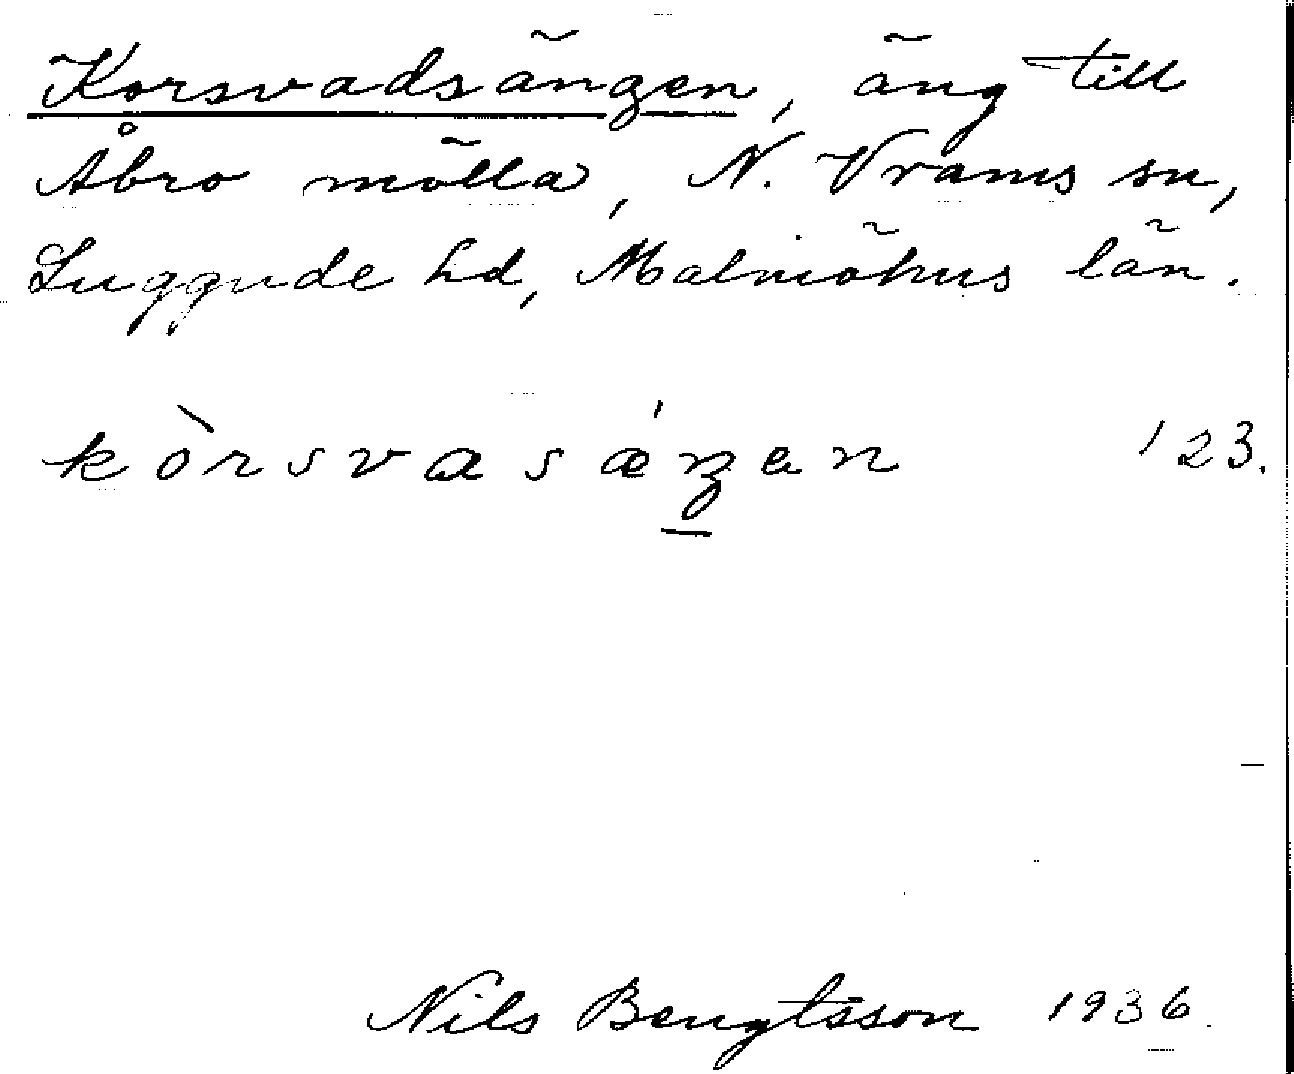 Korsvadsängen, äng till
Åbro mölla, N. Vrams sn,
Luggude hd, Malmöhus län.
kòrsvasǽŋen 123.
Nils Bengtsson 1936.